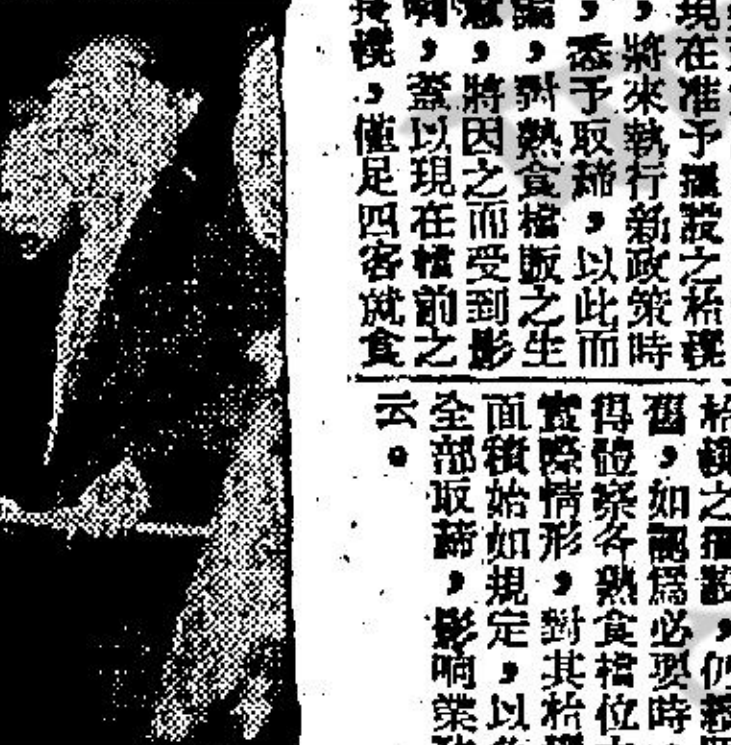 現在准予擺設之枱櫈
，將來執行新政策時
，悉予取締，以此而
，對熱食檔販之生
，將因之而受到影
，蓋以現在檔前之
櫈，僅足四客就食
枱櫈之擺設，仍
舊，如認爲必要時
得體察各熱食檔位
實際情形，對其枱
面積始如規定，以
全部取締，影响業
云。